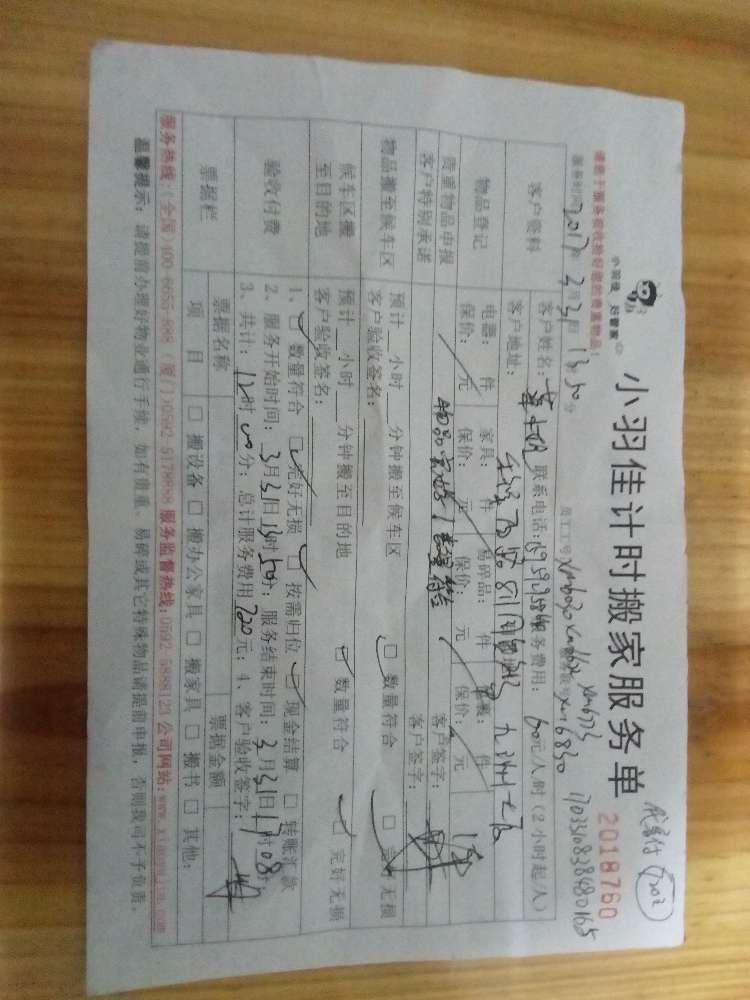 小羽佳 好管家
小羽佳计时搬家服务单
2018760
请您于服务前收拾好您的贵重物品!
服务时间:2017年3月31日13:50分 员工工号
1703310838480165
客户资料
客户姓名: 联系电话: 服务费用:60元/人/时(2小时起/人)
客户地址:
物品登记
电器: 件 家具: 件 易碎品: 件 件
保价: 元 保价: 元 保价: 元 保价: 元
贵重物品申报
客户特别承诺
客户签字:
客户签字:
物品搬至候车区
预计__小时__分钟搬至候车区 □ 数量符合 □ 完好无损
客户验收签名:
候车区搬
至目的地
预计__小时__分钟搬至目的地 □ 数量符合 □ 完好无损
客户验收签名:
验收付费
1、□ 数量符合 □ 完好无损 □ 按需归位 □ 现金结算 □ 转账汇款
2、服务开始时间:3月31日13时50分;服务结束时间:3月31日17时08分
3、共计:12时00分;总计服务费用720元;4、客户验收签字:
票据栏
票据名称 票据金额
项 目 □ 搬设备 □ 搬办公家具 □ 搬家具 □ 搬书 □ 其他:
服务热线:(全国)400-6055-888 (厦门)0592-5178888 服务监督热线:0592-5888123 公司网站:www.xiaoyujia.com
温馨提示:请提前办理好物业通行手续,如有贵重、易碎或其它特殊物品请提前申报,否则我司不予负责。